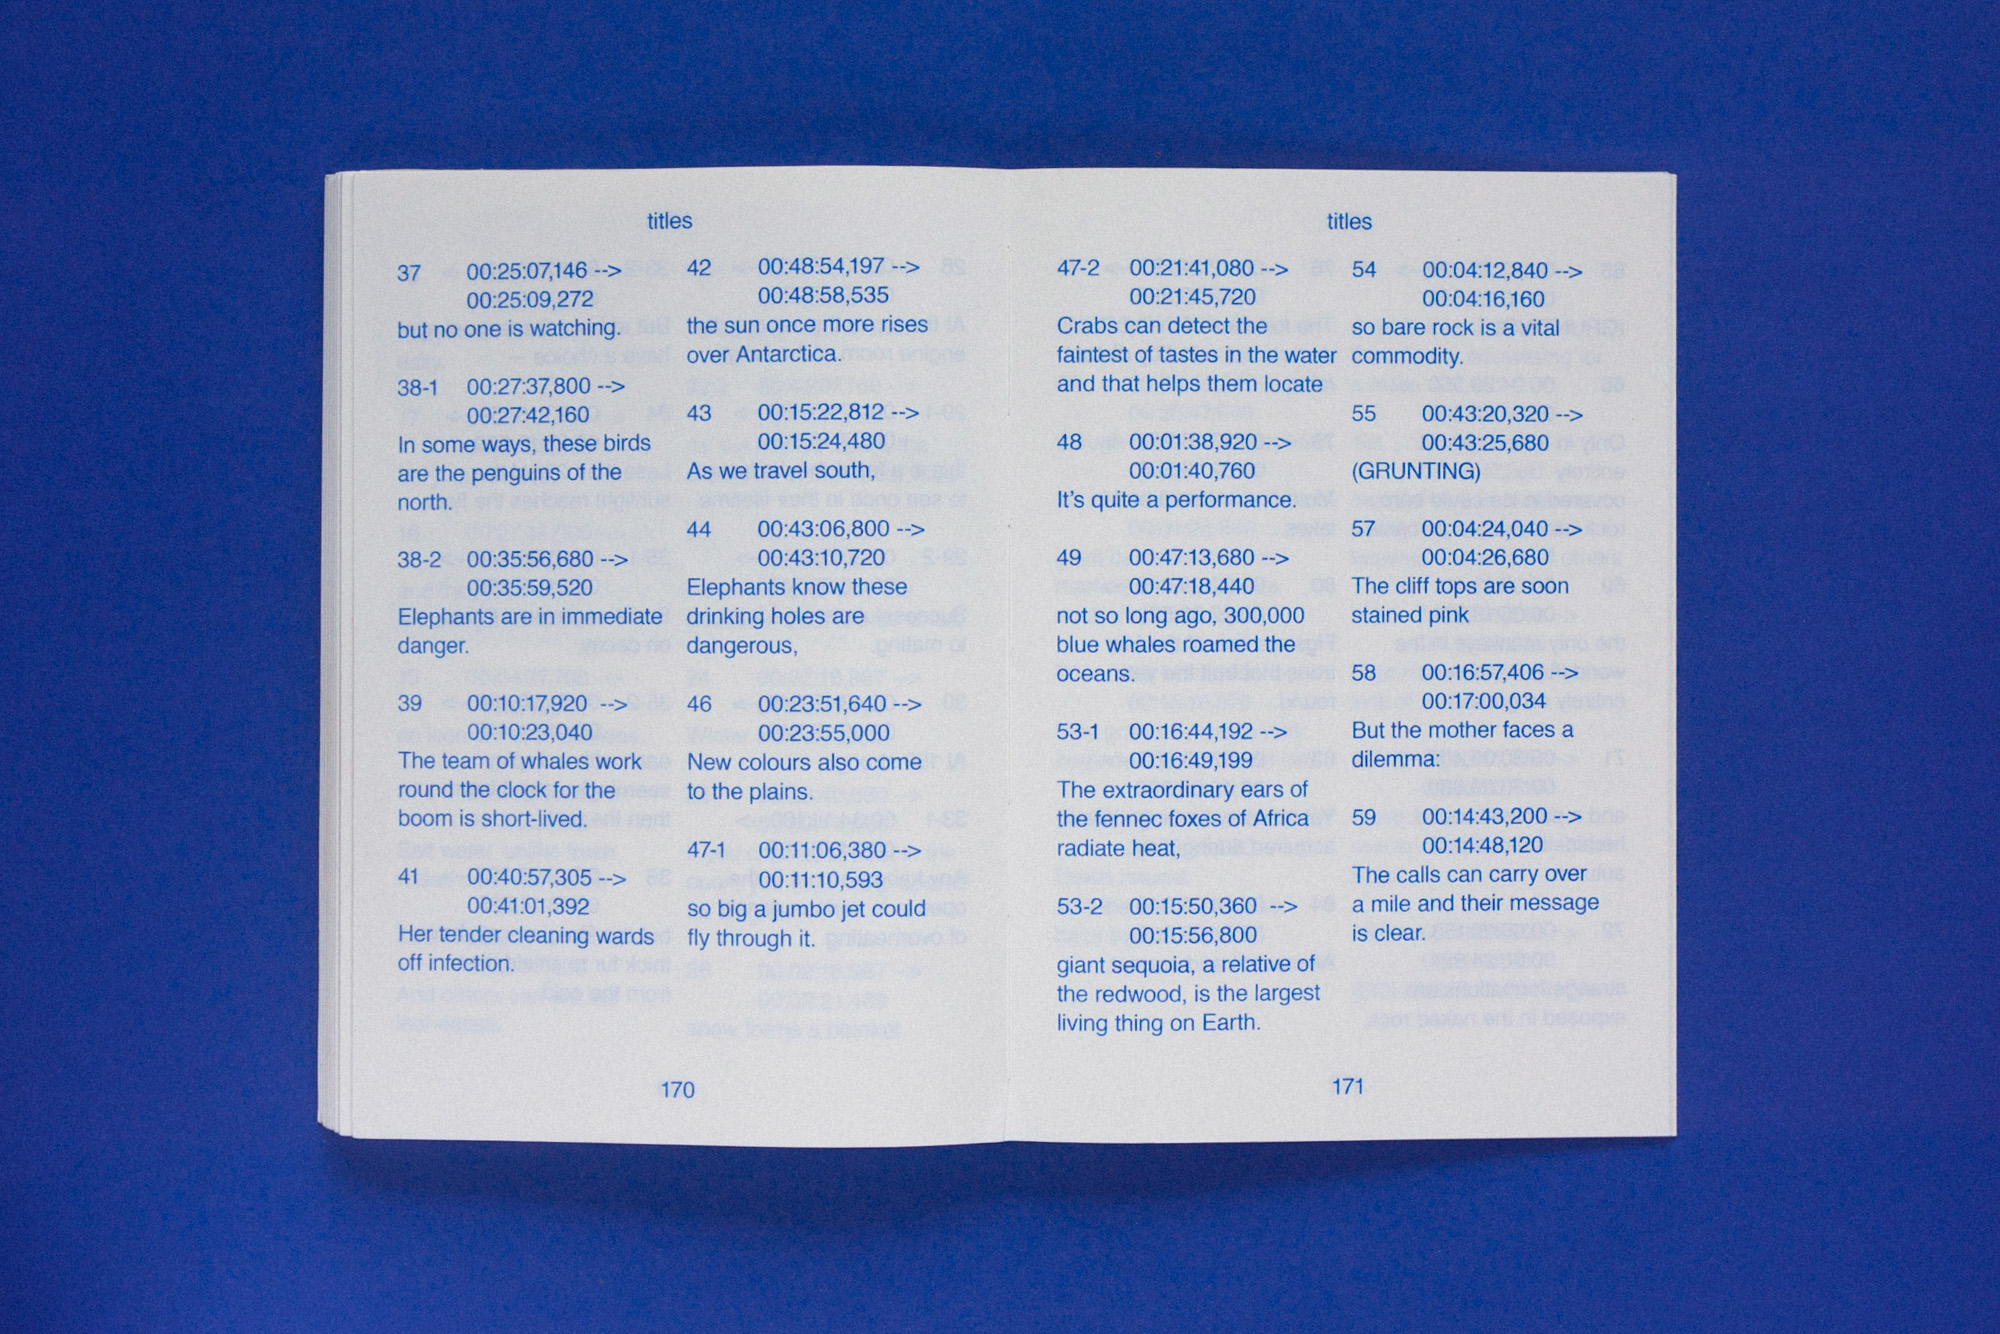 titles
37 00:25:07,146 -->
00:25:09,272
but no one is watching.
38-1 00:27:37,800 -->
00:27:42,160
In some ways, these birds
are the penguins of the
north.
38-2 00:35:56,680 -->
00:35:59,520
Elephants are in immediate
danger.
39 00:10:17,920 -->
00:10:23,040
The team of whales work
round the clock for the
boom is short-lived.
41 00:40:57,305 -->
00:41:01,392
Her tender cleaning wards
off infection.
42 00:48:54,197 -->
00:48:58,535
the sun once more rises
over Antarctica.
43 00:15:22,812 -->
00:15:24,480
As we travel south,
44 00:43:06,800 -->
00:43:10,720
Elephants know these
drinking holes are
dangerous,
46 00:23:51,640 -->
00:23:55,000
New colours also come
to the plains.
47-1 00:11:06,380 -->
00:11:10,593
so big a jumbo jet could
fly through it.
170
titles
47-2 00:21:41,080 -->
00:21:45,720
Crabs can detect the
faintest of tastes in the water
and that helps them locate
48 00:01:38,920 -->
00:01:40,760
It's quite a performance.
49 00:47:13,680 -->
00:47:18,440
not so long ago, 300,000
blue whales roamed the
oceans.
53-1 00:16:44,192 -->
00:16:49,199
The extraordinary ears of
the fennec foxes of Africa
radiate heat,
53-2 00:15:50,360 -->
00:15:56,800
giant sequoia, a relative of
the redwood, is the largest
living thing on Earth.
54 00:04:12,840 -->
00:04:16,160
so bare rock is a vital
commodity.
55 00:43:20,320 -->
00:43:25,680
(GRUNTING)
57 00:04:24,040 -->
00:04:26,680
The cliff tops are soon
stained pink
58 00:16:57,406 -->
00:17:00,034
But the mother faces a
dilemma:
59 00:14:43,200 -->
00:14:48,120
The calls can carry over
a mile and their message
is clear.
171